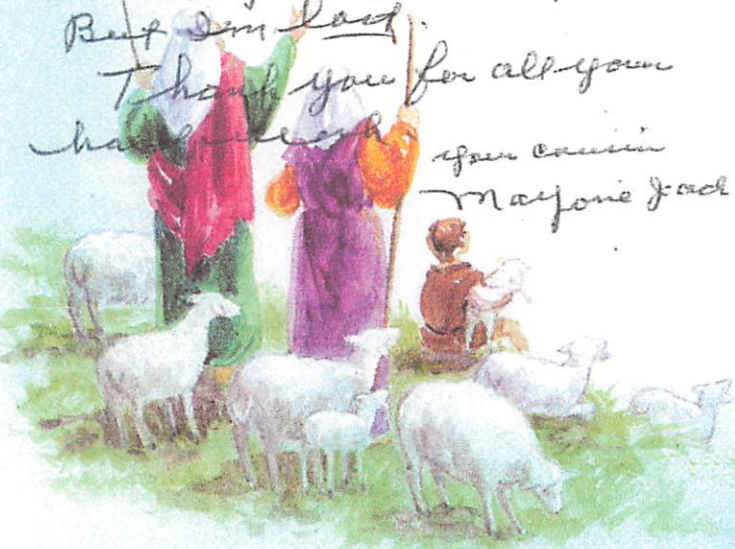 But I'm lost.
Thank you for all your
hard work
your cousin
Marjorie Jack